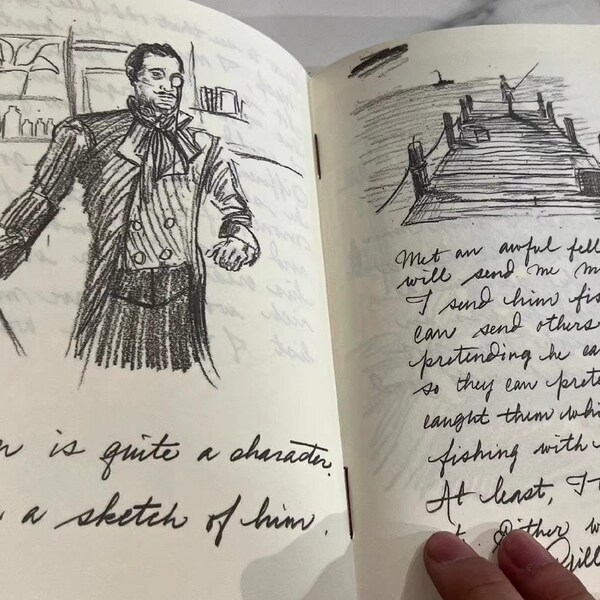 is quite a character.
a sketch of him.
Met an awful fell
will send me m
I send him fis
can send others
pretending he ca
so they can prete
caught them whi
fishing with
At least, I
Either w
Gill